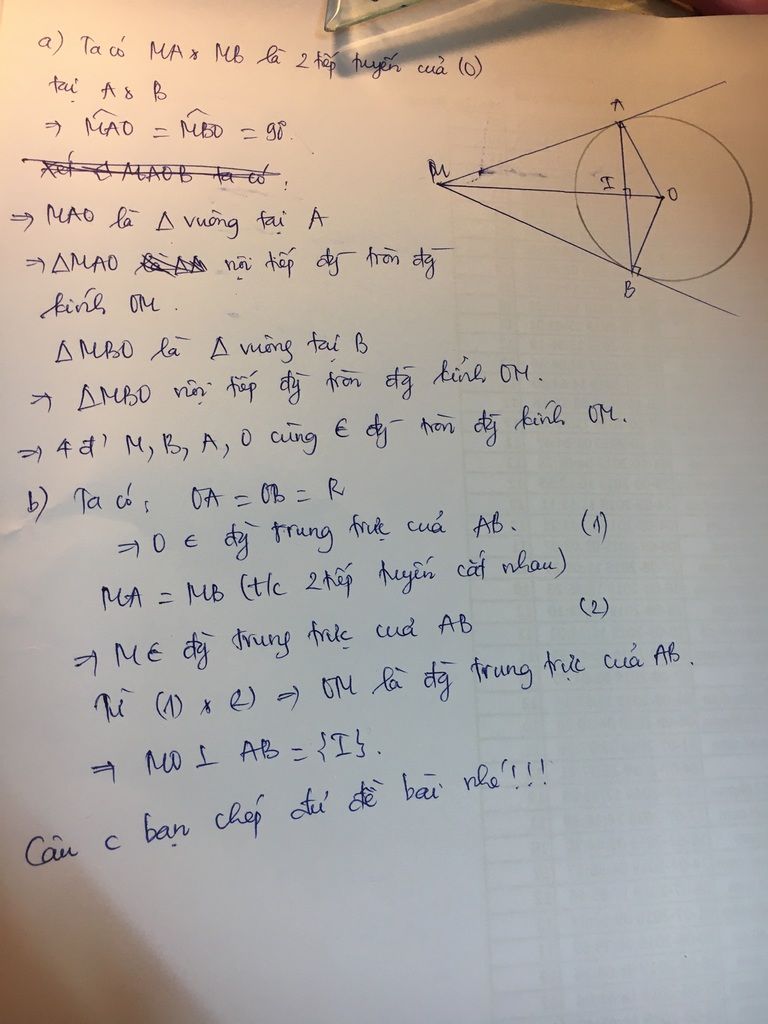 a) Ta có MA & MB là 2 tiếp tuyến của (O)
tại A & B
⇒ \widehat{MAO} = \widehat{MBO} = 90°.
Xét ◇ MAOB ta có:
⇒ MAO là Δ vuông tại A
⇒ ΔMAO nội tiếp đg̀ tròn đg̀
kính OM.
ΔMBO là Δ vuông tại B
⇒ ΔMBO nội tiếp đg̀ tròn đg̀ kính OM.
⇒ 4 đ' M, B, A, O cùng ∈ đg̀ tròn đg̀ kính OM.
b) Ta có: OA = OB = R
⇒ O ∈ đg̀ trung trực của AB. (1)
MA = MB (t/c 2 tiếp tuyến cắt nhau)
⇒ M ∈ đg̀ trung trực của AB (2)
Từ (1) & (2) ⇒ OM là đg̀ trung trực của AB.
⇒ MO ⊥ AB = {I}.
Câu c bạn chép đủ đề bài nhé!!!
A
M
I
O
B